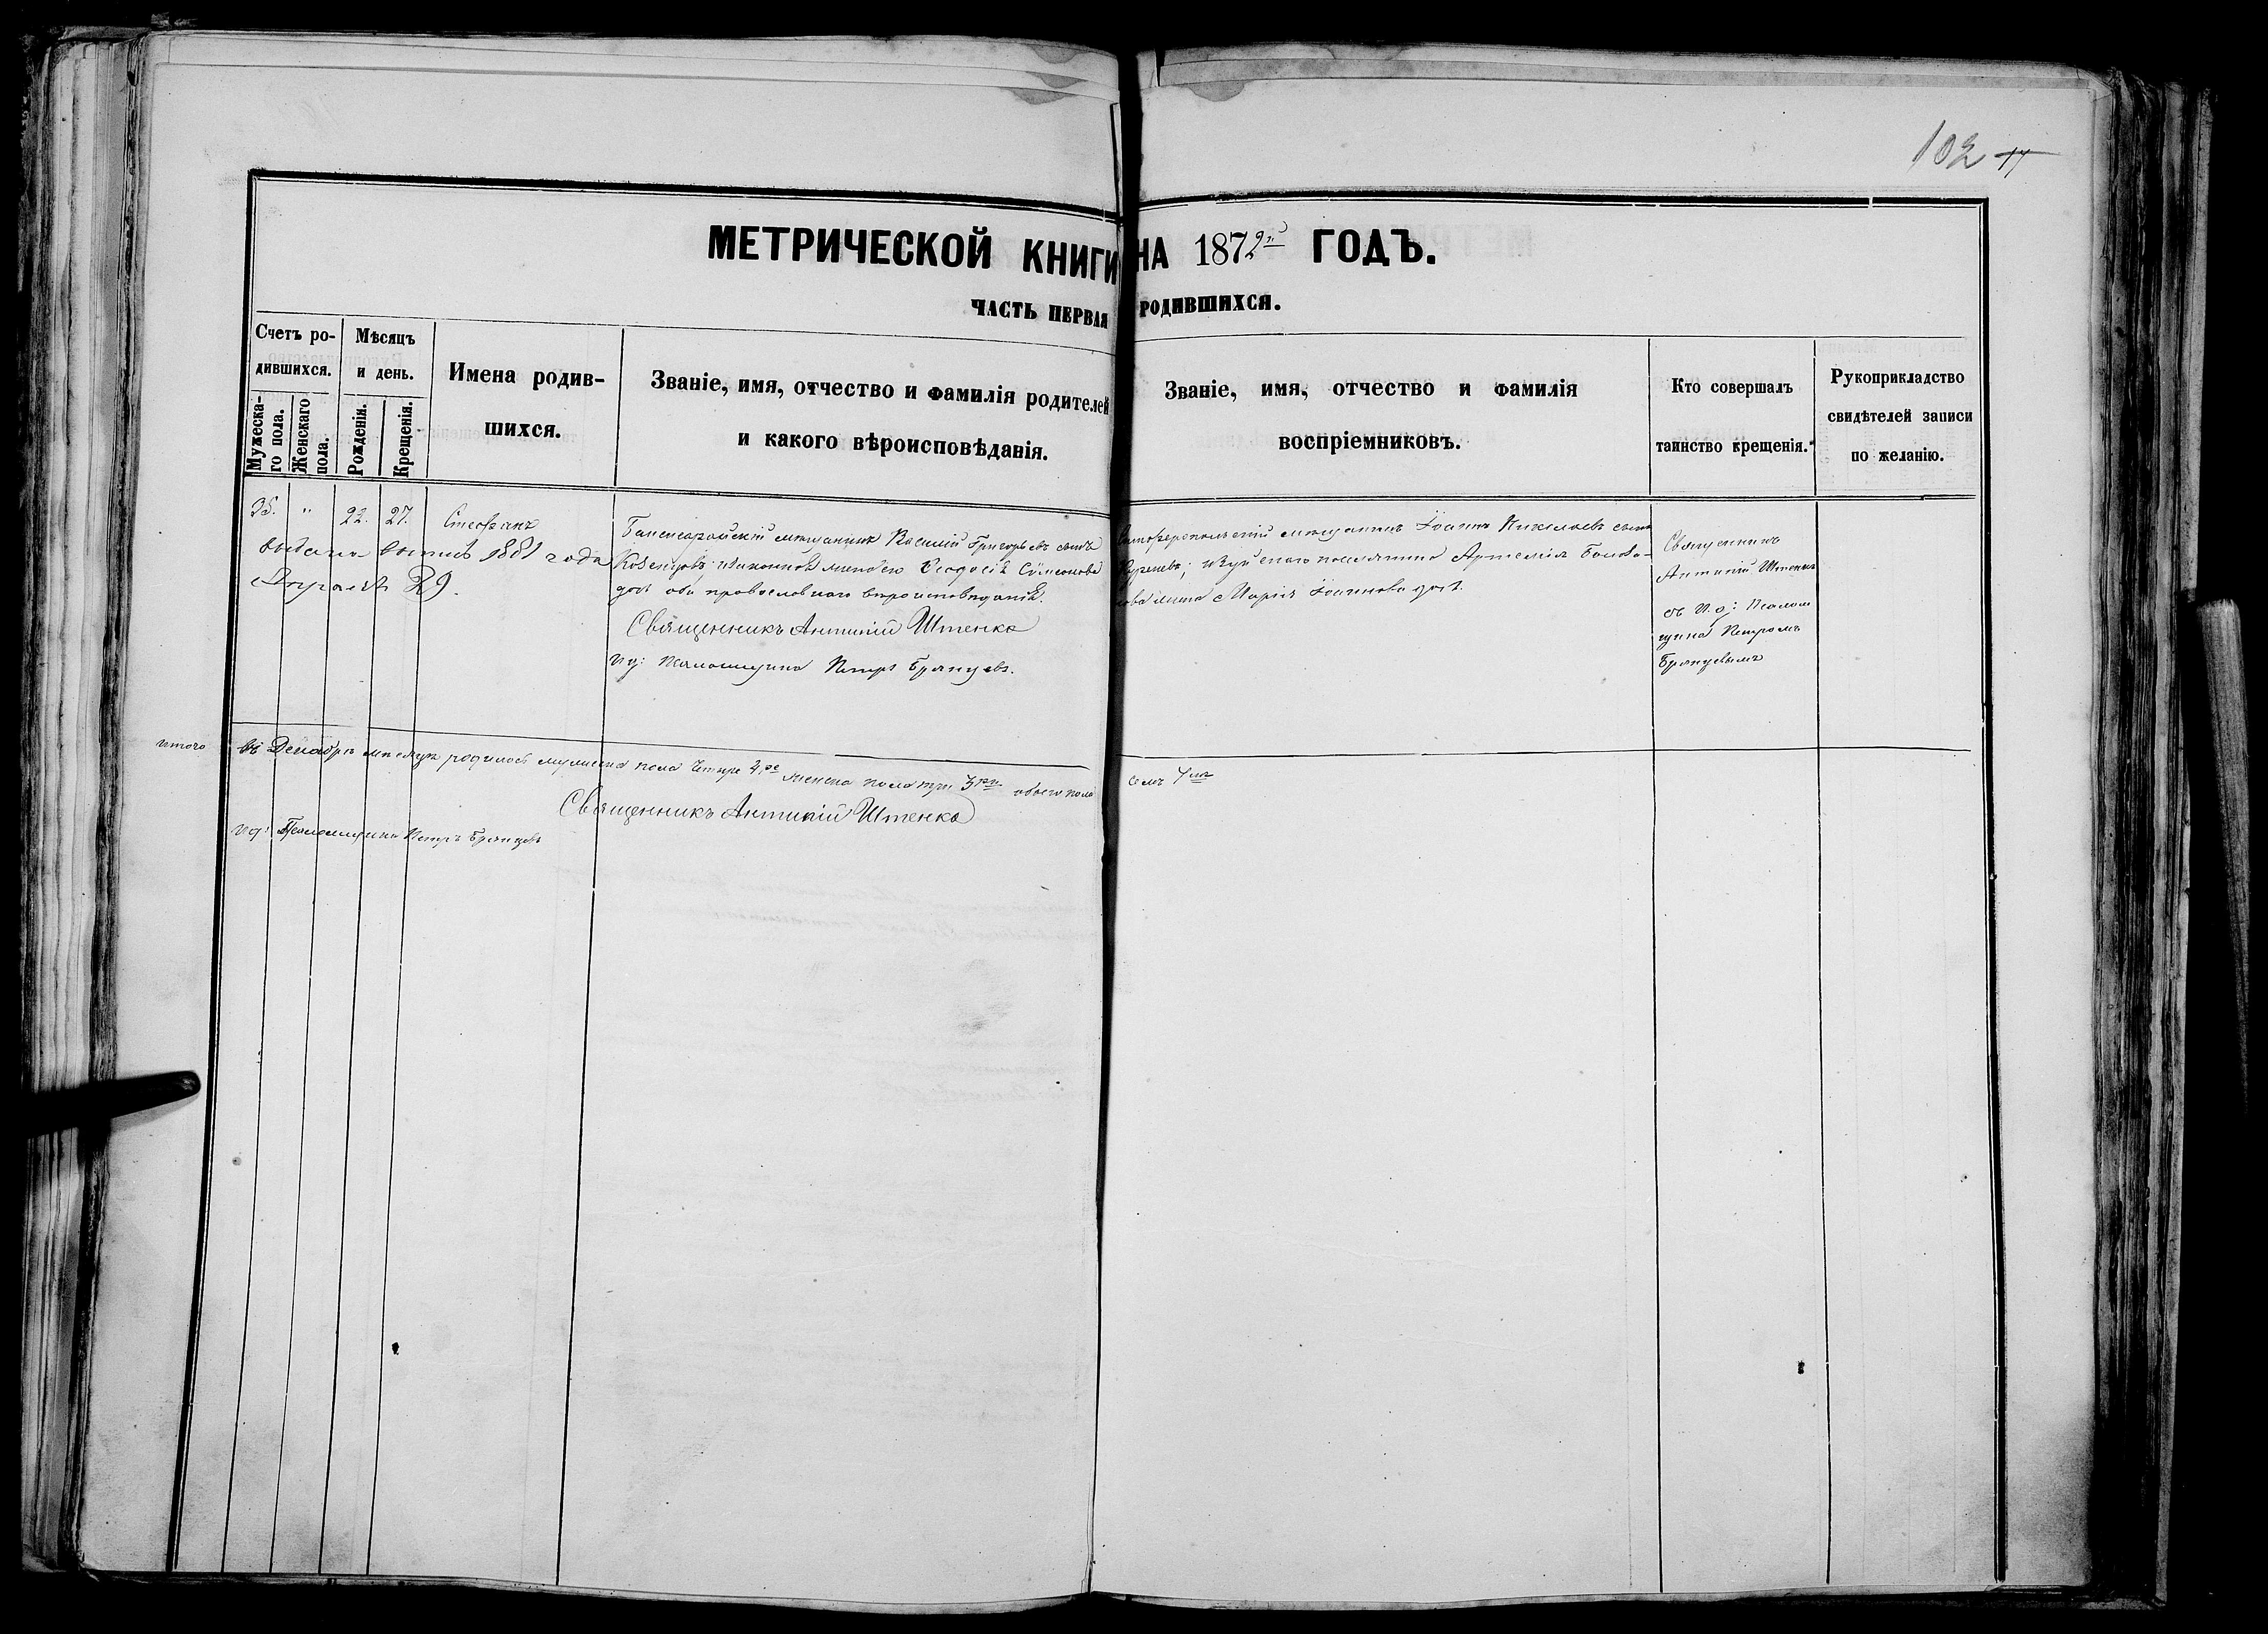 102
МЕТРИЧЕСКОЙ КНИГИ НА 1872й ГОДЪ.
ЧАСТЬ ПЕРВАЯ РОДИВШИХСЯ.
Счетъ родившихся.
Мужеска-
го пола.
Женскаго
пола.
Мѣсяцъ
и день.
Рожденія.
Крещенія.
Имена родив-
шихся.
Званіе, имя, отчество и фамилія родителей
и какого вѣроисповѣданія.
Званіе, имя, отчество и фамилія
воспріемниковъ.
Кто совершалъ
таинство крещенія.
Рукоприкладство
свидѣтелей записи
по желанію.
35. " 22. 27. Стефанъ
1881 года
29.
мѣщанинъ Василій Григорьевъ сынъ
законной женою Ѳеодосія Сѵмеонова
оба православнаго вѣроисповѣданія.
Священникъ Антипій Штенко
Ид: Псаломщика Петръ Брянцевъ.
мѣщанинъ Іоаннъ Николаевъ сынъ
поселянина Артемія
жена Марія Іоаннова
Священникъ
Антипій
съ И. д: Псалом
щика Петромъ
Брянцевымъ
итого въ Декабрѣ мѣсяцѣ родилось мужеска пола четыре 4ре женска пола три 3ри обоего пола семъ 7мъ
Священникъ Антипій Штенко
Ид: Псаломщика Петръ Брянцевъ